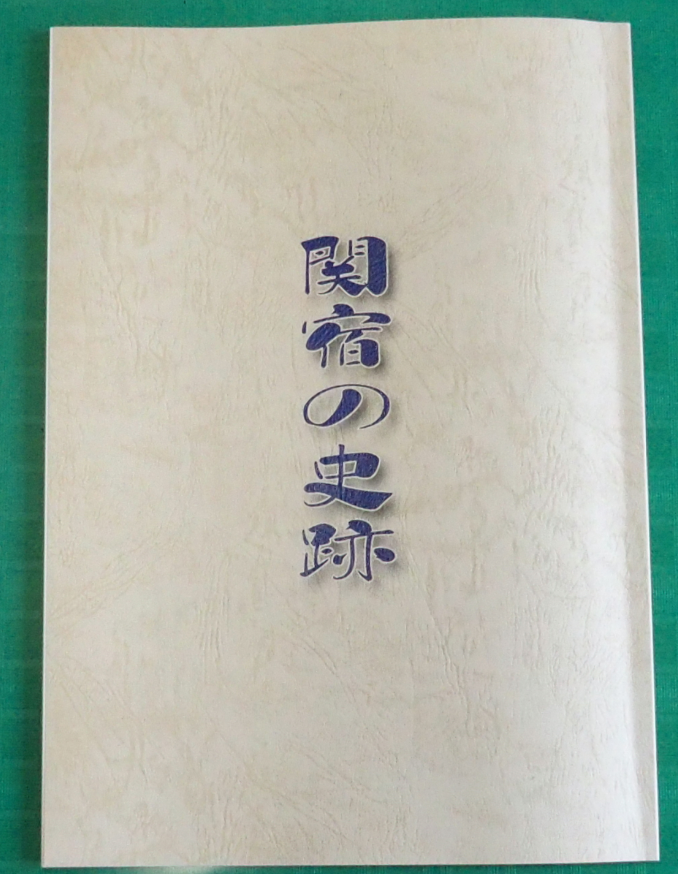 関宿の史跡